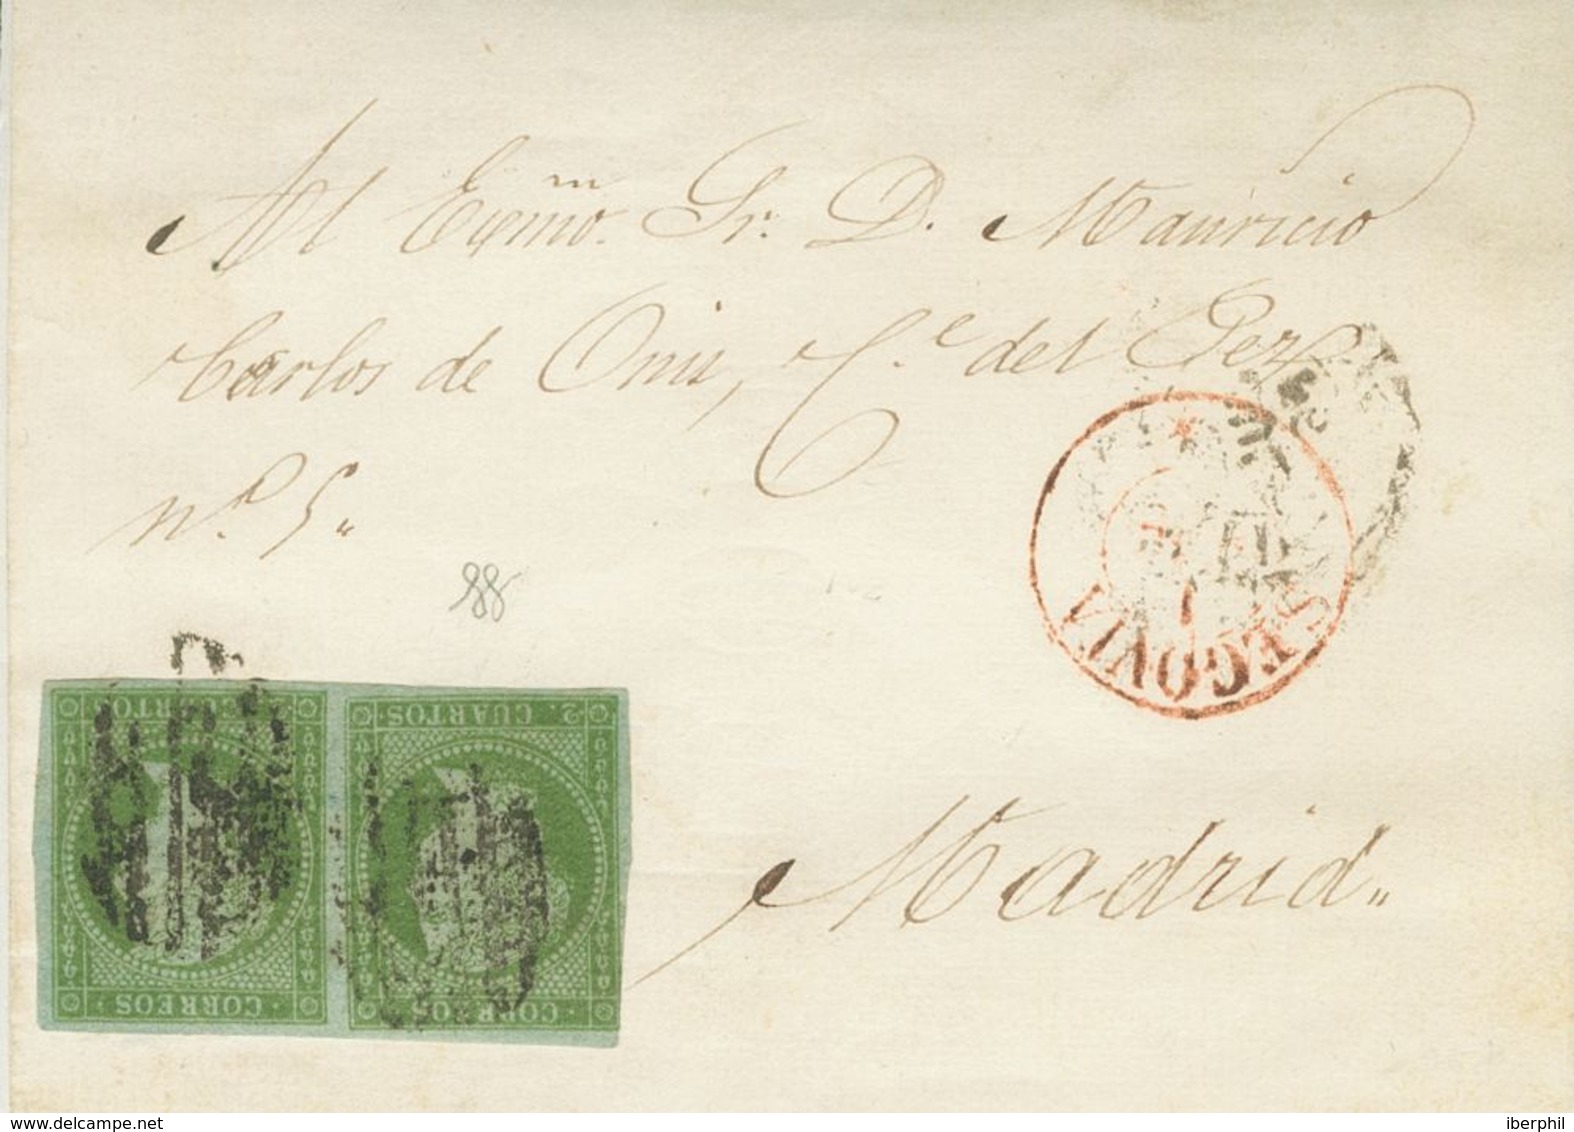 Al Exmo. Sr. D. Mauricio
Carlos de Onis, C.e del Pez
nº 5„
SEGOVIA
CUARTOS
2. CUARTOS.
CORREOS
CORREOS
Madrid„
www.delcampe.net
iberphil